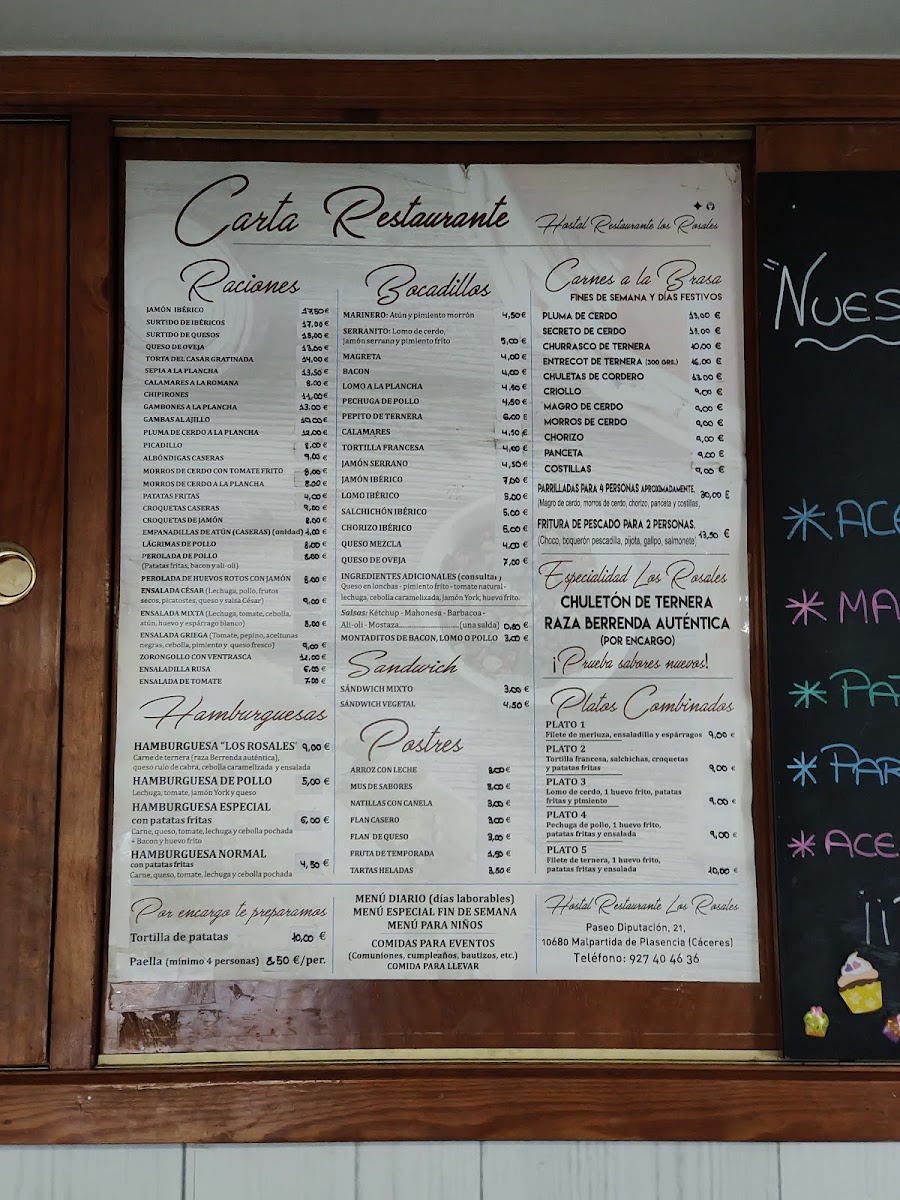 Carta Restaurante
Hostal Restaurante los Rosales
Raciones
JAMÓN IBÉRICO 17,50 €
SURTIDO DE IBÉRICOS 17,00 €
SURTIDO DE QUESOS 15,00 €
QUESO DE OVEJA 13,00 €
TORTA DEL CASAR GRATINADA 14,00 €
SEPIA A LA PLANCHA 13,50 €
CALAMARES A LA ROMANA 8,00 €
CHIPIRONES 11,00 €
GAMBONES A LA PLANCHA 13,00 €
GAMBAS AL AJILLO
PLUMA DE CERDO A LA PLANCHA 12,00 €
PICADILLO 8,00 €
ALBÓNDIGAS CASERAS 9,00 €
MORROS DE CERDO CON TOMATE FRITO 8,00 €
MORROS DE CERDO A LA PLANCHA 8,00 €
PATATAS FRITAS 4,00 €
CROQUETAS CASERAS 9,00 €
CROQUETAS DE JAMÓN 8,00 €
EMPANADILLAS DE ATÚN (CASERAS) (unidad) 1,00 €
LÁGRIMAS DE POLLO 8,00 €
PEROLADA DE POLLO 8,00 €
(Patatas fritas, bacon y ali-oli)
PEROLADA DE HUEVOS ROTOS CON JAMÓN 8,00 €
ENSALADA CÉSAR (Lechuga, pollo, frutos
secos, picatostes, queso y salsa César) 9,00 €
ENSALADA MIXTA (Lechuga, tomate, cebolla,
atún, huevo y espárrago blanco) 8,00 €
ENSALADA GRIEGA (Tomate, pepino, aceitunas
negras, cebolla, pimiento y queso fresco) 9,00 €
ZORONGOLLO CON VENTRASCA 12,00 €
ENSALADILLA RUSA 6,00 €
ENSALADA DE TOMATE 7,00 €
Hamburguesas
HAMBURGUESA "LOS ROSALES" 9,00 €
Carne de ternera (raza Berrenda auténtica),
queso rulo de cabra, cebolla caramelizada y ensalada
HAMBURGUESA DE POLLO 5,00 €
Lechuga, tomate, jamón York y queso
HAMBURGUESA ESPECIAL
con patatas fritas 6,00 €
Carne, queso, tomate, lechuga y cebolla pochada
+ Bacon y huevo frito
HAMBURGUESA NORMAL
con patatas fritas 4,50 €
Carne, queso, tomate, lechuga y cebolla pochada
Por encargo te preparamos
Tortilla de patatas 10,00 €
Paella (mínimo 4 personas) 8,50 €/per.
Bocadillos
MARINERO: Atún y pimiento morrón 4,50 €
SERRANITO: Lomo de cerdo,
jamón serrano y pimiento frito 5,00 €
MAGRETA 4,00 €
BACON 4,00 €
LOMO A LA PLANCHA
PECHUGA DE POLLO 4,50 €
PEPITO DE TERNERA 6,00 €
CALAMARES 4,50 €
TORTILLA FRANCESA 4,00 €
JAMÓN SERRANO 4,50 €
JAMÓN IBÉRICO 7,00 €
LOMO IBÉRICO 5,00 €
SALCHICHÓN IBÉRICO 5,00 €
CHORIZO IBÉRICO 5,00 €
QUESO MEZCLA 4,00 €
QUESO DE OVEJA 7,00 €
INGREDIENTES ADICIONALES (consultar)
Queso en lonchas - pimiento frito - tomate natural -
lechuga, cebolla caramelizada, jamón York, huevo frito.
Salsas: Kétchup - Mahonesa - Barbacoa -
Ali-oli - Mostaza (una salda) 0,80 €
MONTADITOS DE BACON, LOMO O POLLO 3,00 €
Sandwich
SÁNDWICH MIXTO 3,00 €
SÁNDWICH VEGETAL 4,50 €
Postres
ARROZ CON LECHE 3,00 €
MUS DE SABORES 3,00 €
NATILLAS CON CANELA 3,00 €
FLAN CASERO 3,00 €
FLAN DE QUESO 3,00 €
FRUTA DE TEMPORADA 1,50 €
TARTAS HELADAS 3,50 €
MENÚ DIARIO (días laborables)
MENÚ ESPECIAL FIN DE SEMANA
MENÚ PARA NIÑOS
COMIDAS PARA EVENTOS
(Comuniones, cumpleaños, bautizos, etc.)
COMIDA PARA LLEVAR
Carnes a la Brasa
FINES DE SEMANA Y DÍAS FESTIVOS
PLUMA DE CERDO 13,00 €
SECRETO DE CERDO 13,00 €
CHURRASCO DE TERNERA 10,00 €
ENTRECOT DE TERNERA (300 GRS.) 16,00 €
CHULETAS DE CORDERO 13,00 €
CRIOLLO 9,00 €
MAGRO DE CERDO 9,00 €
MORROS DE CERDO 9,00 €
CHORIZO 9,00 €
PANCETA 9,00 €
COSTILLAS 9,00 €
PARRILLADAS PARA 4 PERSONAS APROXIMADAMENTE. 30,00 €
(Magro de cerdo, morros de cerdo, chorizo, panceta y costillas)
FRITURA DE PESCADO PARA 2 PERSONAS.
(Choco, boquerón pescadilla, pijota, gallpo, salmonete) 17,50 €
Especialidad Los Rosales
CHULETÓN DE TERNERA
RAZA BERRENDA AUTÉNTICA
(POR ENCARGO)
¡Prueba sabores nuevos!
Platos Combinados
PLATO 1
Filete de merluza, ensaladilla y espárragos 9,00 €
PLATO 2
Tortilla francesa, salchichas, croquetas
y patatas fritas 9,00 €
PLATO 3
Lomo de cerdo, 1 huevo frito, patatas
fritas y pimiento 9,00 €
PLATO 4
Pechuga de pollo, 1 huevo frito,
patatas fritas y ensalada 9,00 €
PLATO 5
Filete de ternera, 1 huevo frito,
patatas fritas y ensalada 10,00 €
Hostal Restaurante Los Rosales
Paseo Diputación, 21,
10680 Malpartida de Plasencia (Cáceres)
Teléfono: 927 40 46 36
"NUES
* ACE
* MA
* PAT
* PAR
* ACE
¡¡